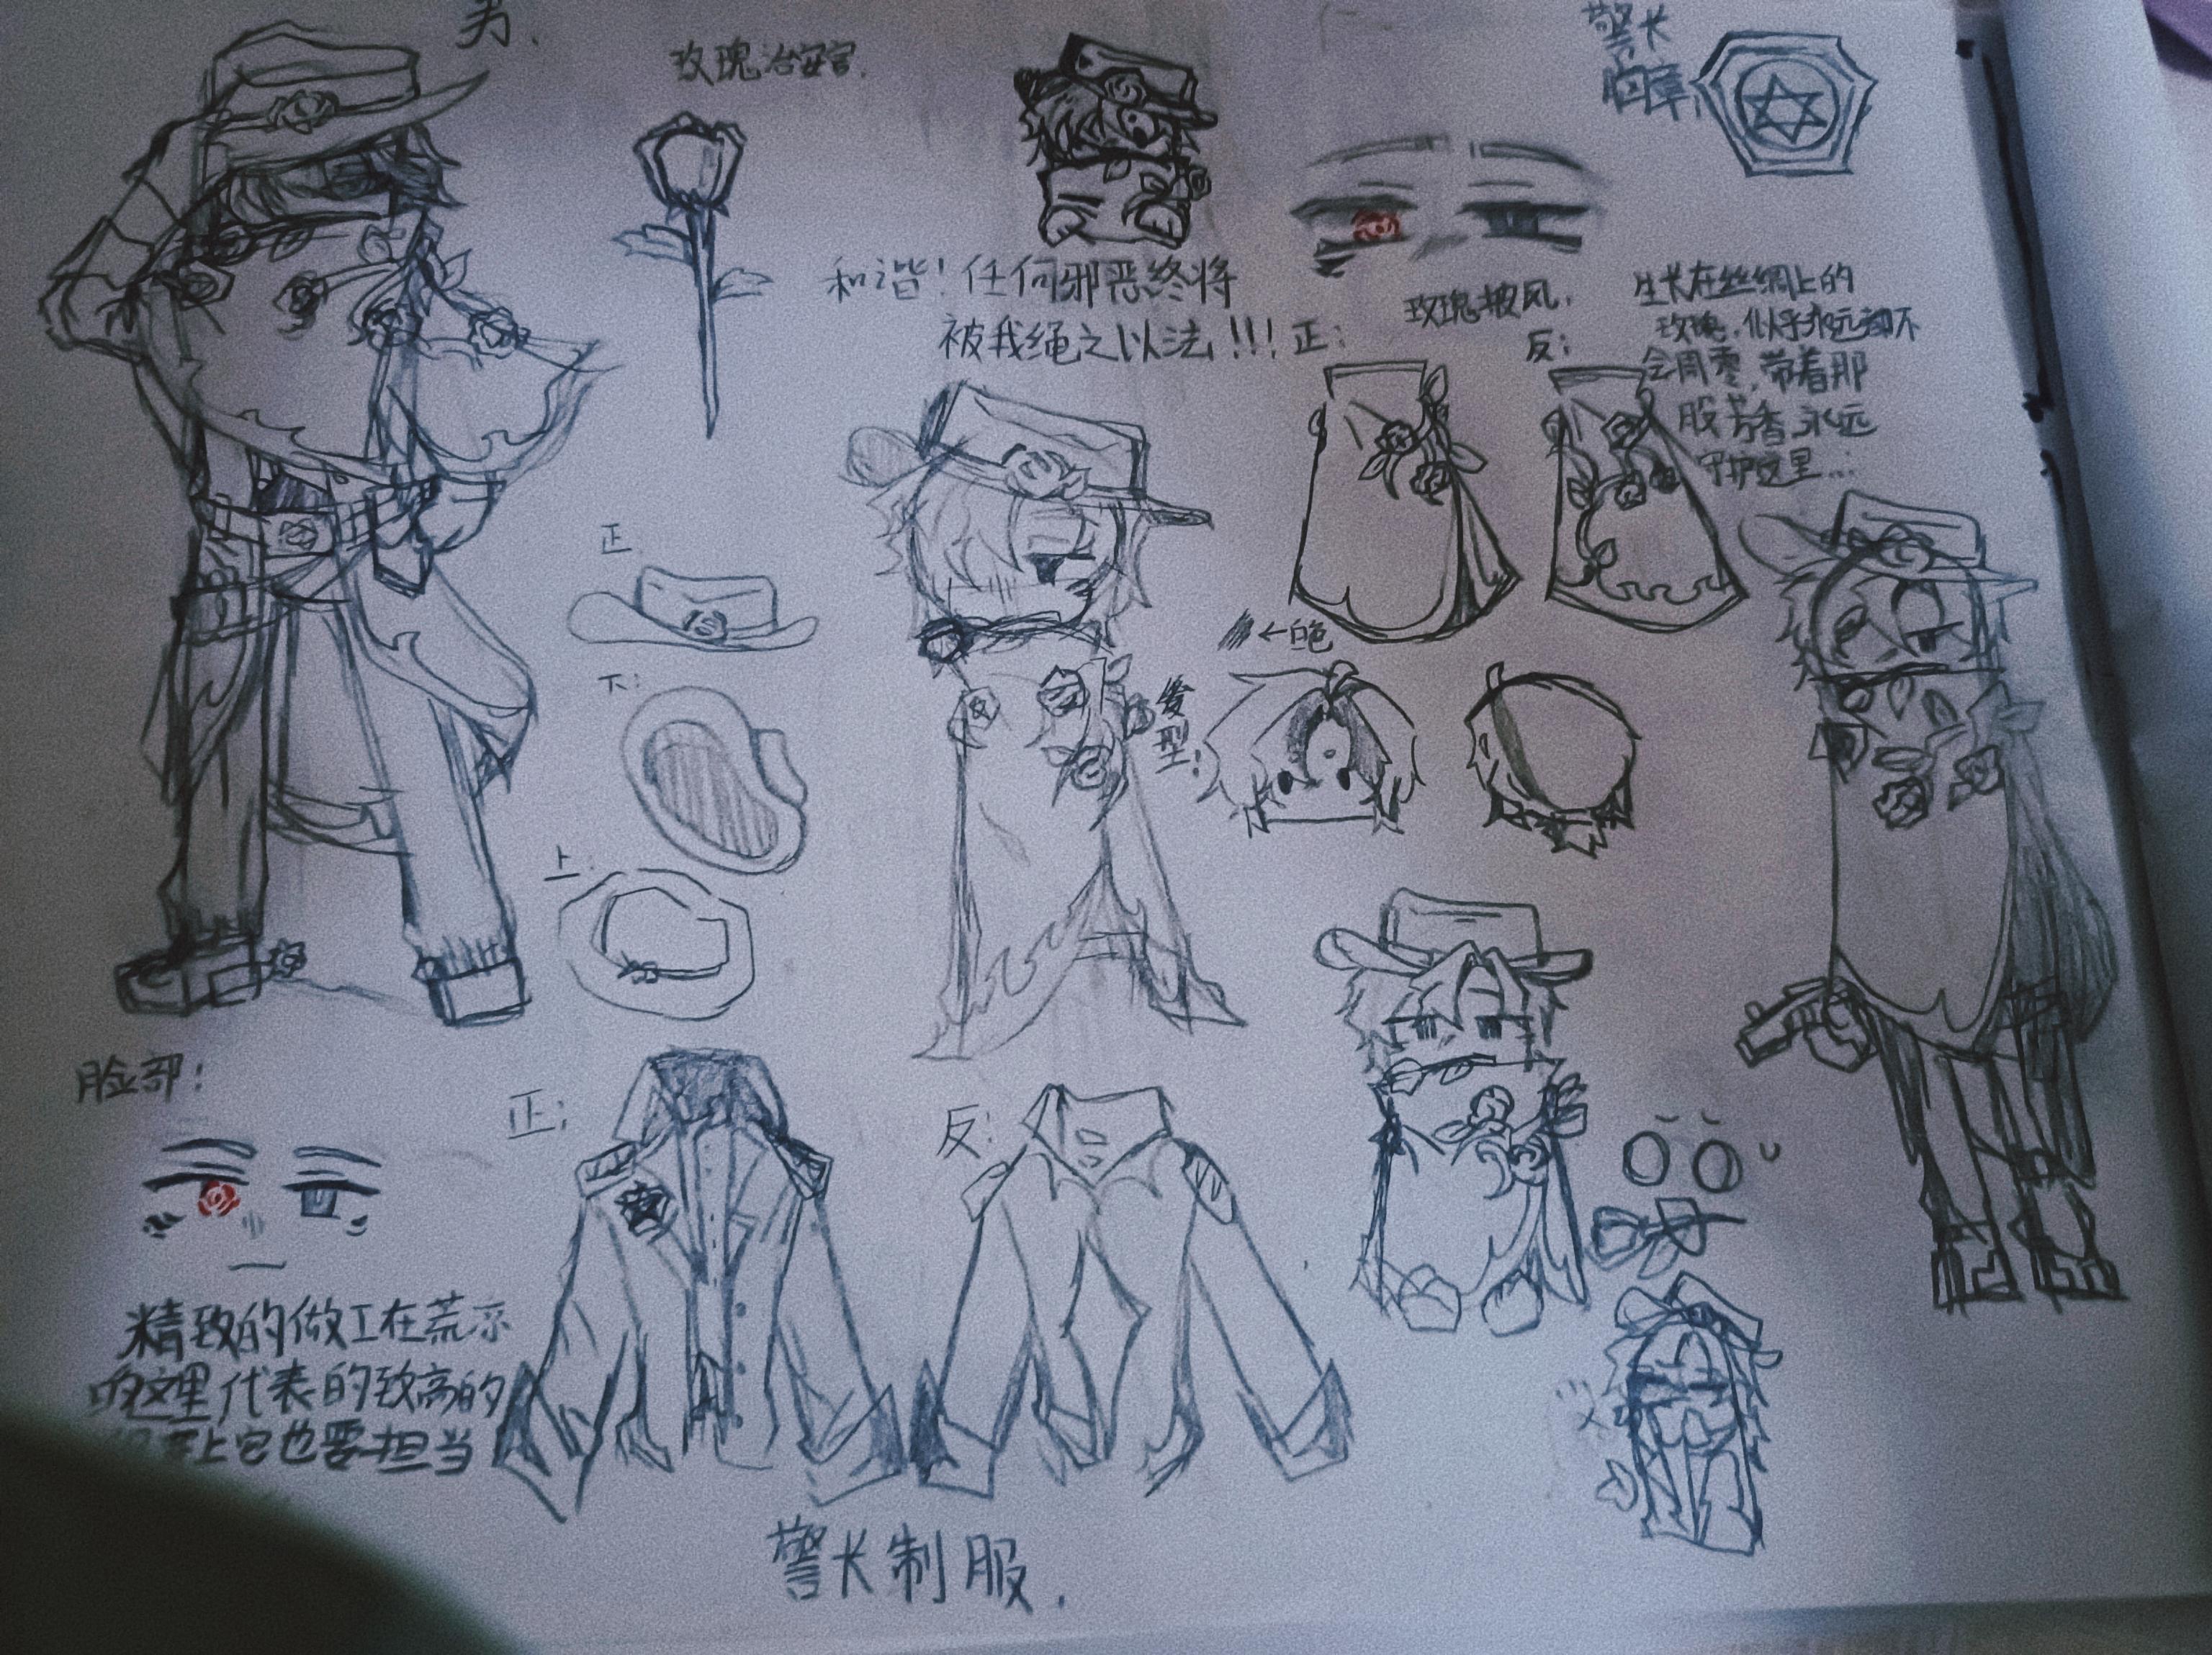 男.
玫瑰治安官.
警长
胸章
和谐！任何邪恶终将
被我绳之以法!!!
玫瑰披风.
正:
反:
生长在丝绸上的
玫瑰.似乎永远都不
会周零,带着那
股芳香永远
守护这里...
正.
下:
上:
←白色
发
型:
脸部:
精致的做工在荒凉
的这里代表的致高的
上它也要担当
正:
反:
警长制服.